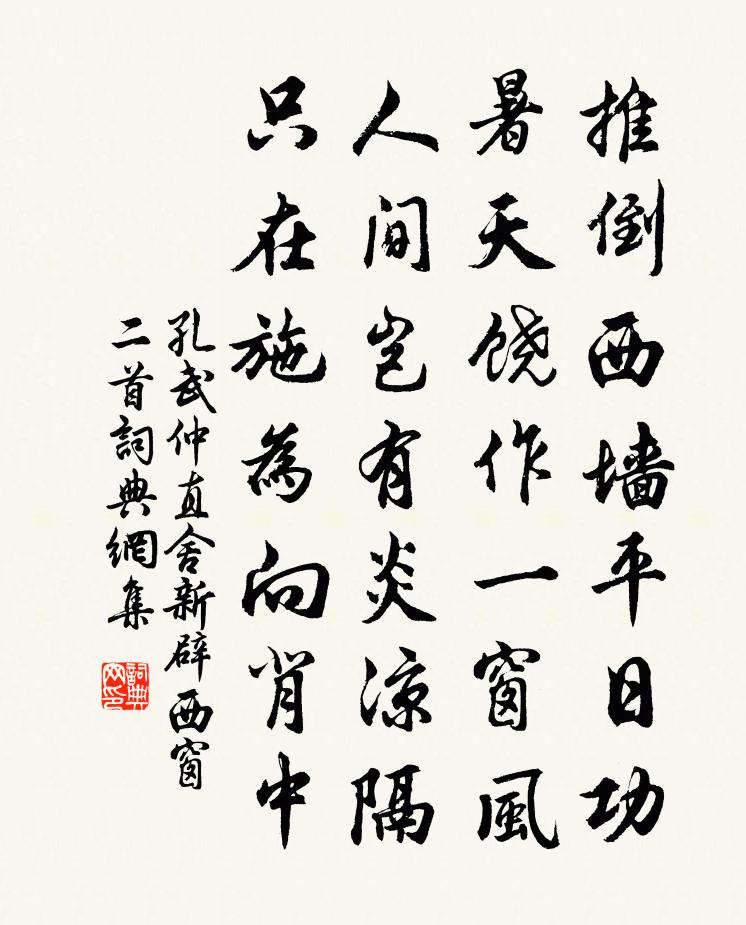 推倒西墙平日功
暑天饶作一窗風
人間岂有炎涼隔
只在施為向背中
孔武仲直舍新辟西窗
二首詞典網集
詞典网印